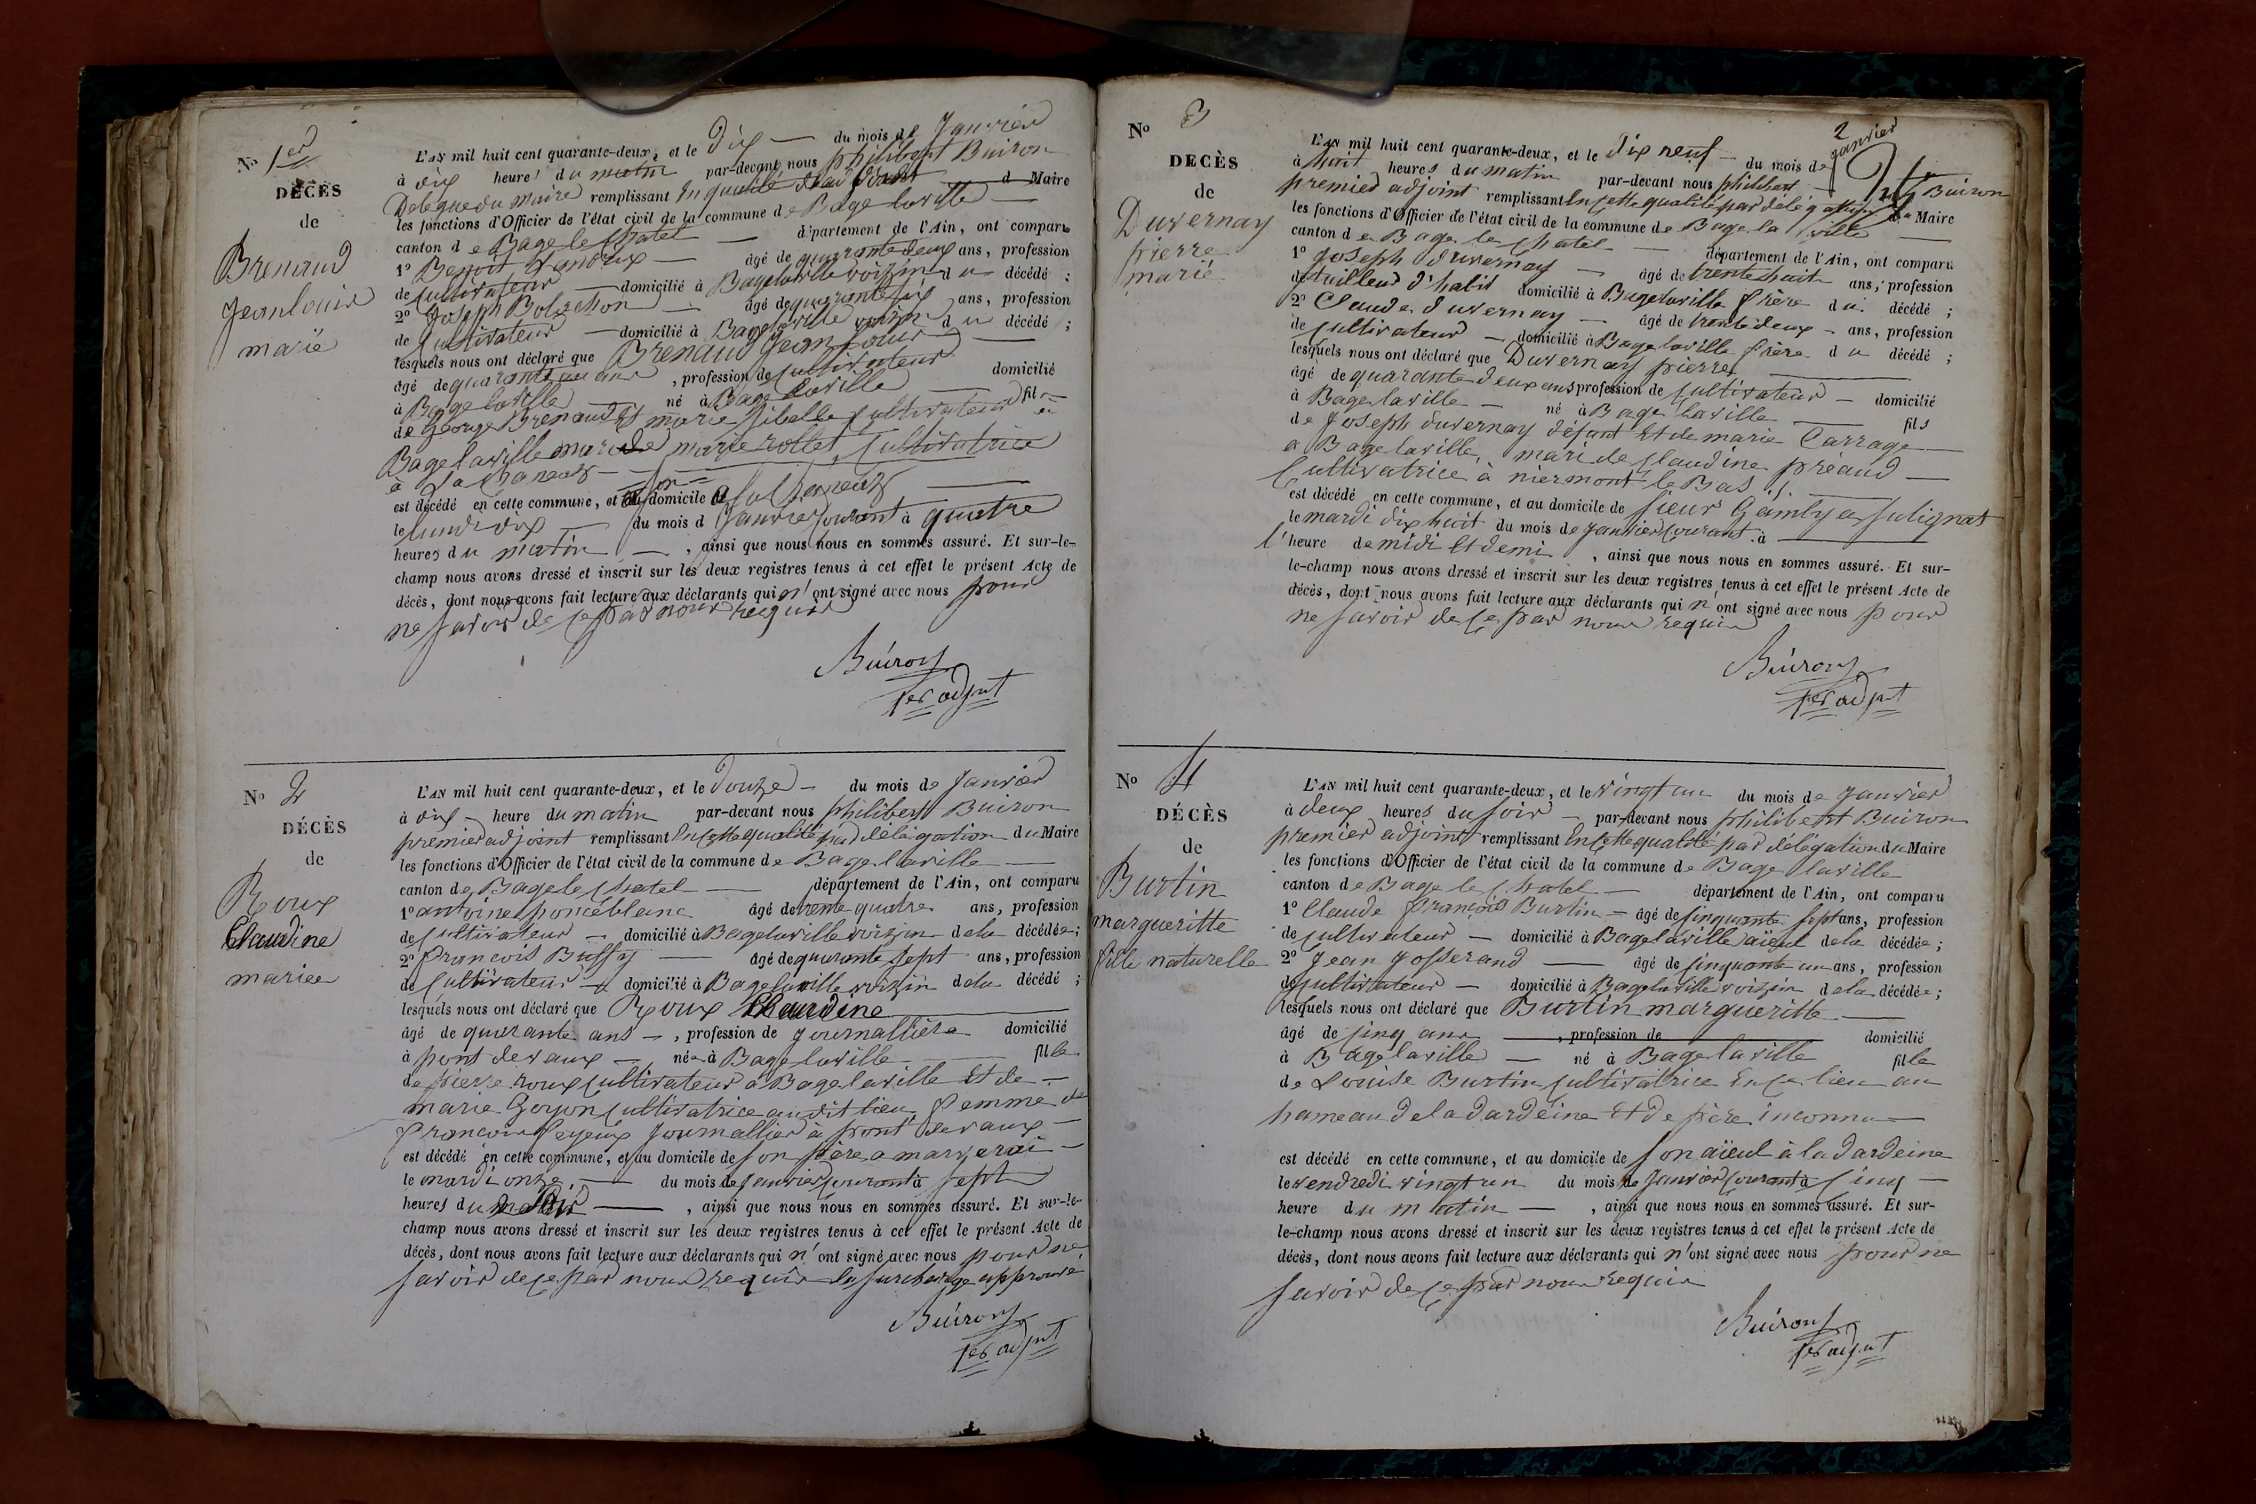 No 1er
DÉCÈS
de
Brenaud
Jean louis
marié
L'AN mil huit cent quarante-deux, et le Dix du mois de Janvier
à dix heures du matin par-devant nous philibert Buiron
Délégué du maire remplissant En qualité d Maire
les fonctions d'Officier de l'état civil de la commune de Bagé la ville
canton de Bage le Chatel département de l'Ain, ont comparu
1° Benoit âgé de quarante deux ans, profession
de Cultivateur domicilié à Bage la ville voizin du décédé ;
2° Joseph âgé de quarante six ans, profession
de Cultivateur domicilié à Bage la ville voizin du décédé ;
lesquels nous ont déclaré que Brenaud Jean Louis
âgé de quarante ans, profession de Cultivateur domicilié
à Bage la ville né à Bage la ville fils
de George Brenaud Et marie Sibelle Cultivateurs en
Bage la ville mari de marie rollet, Cultivatrice
à
est décédé en cette commune, et au domicile
le lundi dix du mois d Janvier Courant à quatre
heures du matin, ainsi que nous nous en sommes assuré. Et sur-le-
champ nous avons dressé et inscrit sur les deux registres tenus à cet effet le présent Acte de
décès, dont nous avons fait lecture aux déclarants qui n'ont signé avec nous pour
ne savoir de ce par nous requis
Buiron
1er adjnt
No 2
DÉCÈS
de
Roux
Claudine
mariee
L'AN mil huit cent quarante-deux, et le Douze du mois de Janvier
à dix heure du matin par-devant nous philibert Buiron
premier adjoint remplissant En cette qualité par délégation du Maire
les fonctions d'Officier de l'état civil de la commune de Bage la ville
canton de Bage le Chatel département de l'Ain, ont comparu
1° antoine poncéblanc âgé de trente quatre ans, profession
de Cultivateur domicilié à Bage la ville voizin de la décédée ;
2° François Buffy âgé de quarante sept ans, profession
de Cultivateur domicilié à Bage la ville voizin de la décédé ;
lesquels nous ont déclaré que Roux Claudine
âgé de quarante ans, profession de Journallière domicilié
à pont de vaux née à Bage la ville fille
de pierre roux Cultivateur à Bage la ville Et de
marie Goyon Cultivatrice au dit lieu, femme de
François Journallier à pont de vaux
est décédé en cette commune, et au domicile de son père a
le mardi onze du mois de Janvier Courant à sept
heures du soir, ainsi que nous nous en sommes assuré. Et sur-le-
champ nous avons dressé et inscrit sur les deux registres tenus à cet effet le présent Acte de
décès, dont nous avons fait lecture aux déclarants qui n'ont signé avec nous pour ne
savoir de ce par nous requis la surcharge approuvé
Buiron
1er adjnt
2
No 3
DECÈS
de
Duvernay
pierre
marié
L'AN mil huit cent quarante-deux, et le dix neuf du mois de Janvier
à huit heures du matin par-devant nous philibert Buiron
premier adjoint remplissant En cette qualité par délégation du Maire
les fonctions d'Officier de l'état civil de la commune de Bage la ville
canton de Bage le Chatel département de l'Ain, ont comparu
1° Joseph Duvernay âgé de trente huit ans, profession
de tailleur d'habit domicilié à Bage la ville frère du décédé ;
2° Claude duvernay âgé de trente deux ans, profession
de Cultivateur domicilié à Bage la ville frère du décédé ;
lesquels nous ont déclaré que Duvernay pierre
âgé de quarante deux ans profession de Cultivateur domicilié
à Bage la ville né à Bage la ville fils
de Joseph duvernay défunt Et de marie Carrage
a Bage la ville, mari de Claudine préaud
Cultivatrice à niermont le Bas
est décédé en cette commune, et au domicile de sieur Gamby a Julignat
le mardi dix huit du mois de Janvier Courant à
l'heure de midi Et demi, ainsi que nous nous en sommes assuré. Et sur-
le-champ nous avons dressé et inscrit sur les deux registres tenus à cet effet le présent Acte de
décès, dont nous avons fait lecture aux déclarants qui n'ont signé avec nous pour
ne savoir de ce par nous requis
Buiron
1er adjnt
No 4
DÉCÈS
de
Burtin
margueritte
fille naturelle
L'AN mil huit cent quarante-deux, et le vingt un du mois de Janvier
à deux heures du soir par-devant nous philibert Buiron
premier adjoint remplissant En cette qualité par délégation du Maire
les fonctions d'Officier de l'état civil de la commune de Bage la ville
canton de Bage le Chatel département de l'Ain, ont comparu
1° Claude François Burtin âgé de Cinquante sept ans, profession
de Cultivateur domicilié à Bage la ville aïeul de la décédée ;
2° Jean Josserand âgé de Cinquante un ans, profession
de Cultivateur domicilié à Bage la ville voizin de la décédée ;
lesquels nous ont déclaré que Burtin margueritte
âgé de Cinq ans, profession de domicilié
à Bage la ville né à Bage la ville fille
de Louise Burtin Cultivatrice En ce lieu au
hameau de la dardeine Et de père inconnu
est décédé en cette commune, et au domicile de son aïeul à la dardeine
le vendredi vingt un du mois de Janvier Courant à Cinq
heure du matin, ainsi que nous nous en sommes assuré. Et sur-
le-champ nous avons dressé et inscrit sur les deux registres tenus à cet effet le présent Acte de
décès, dont nous avons fait lecture aux déclarants qui n'ont signé avec nous pour ne
savoir de ce par nous requis
Buiron
1er adjnt